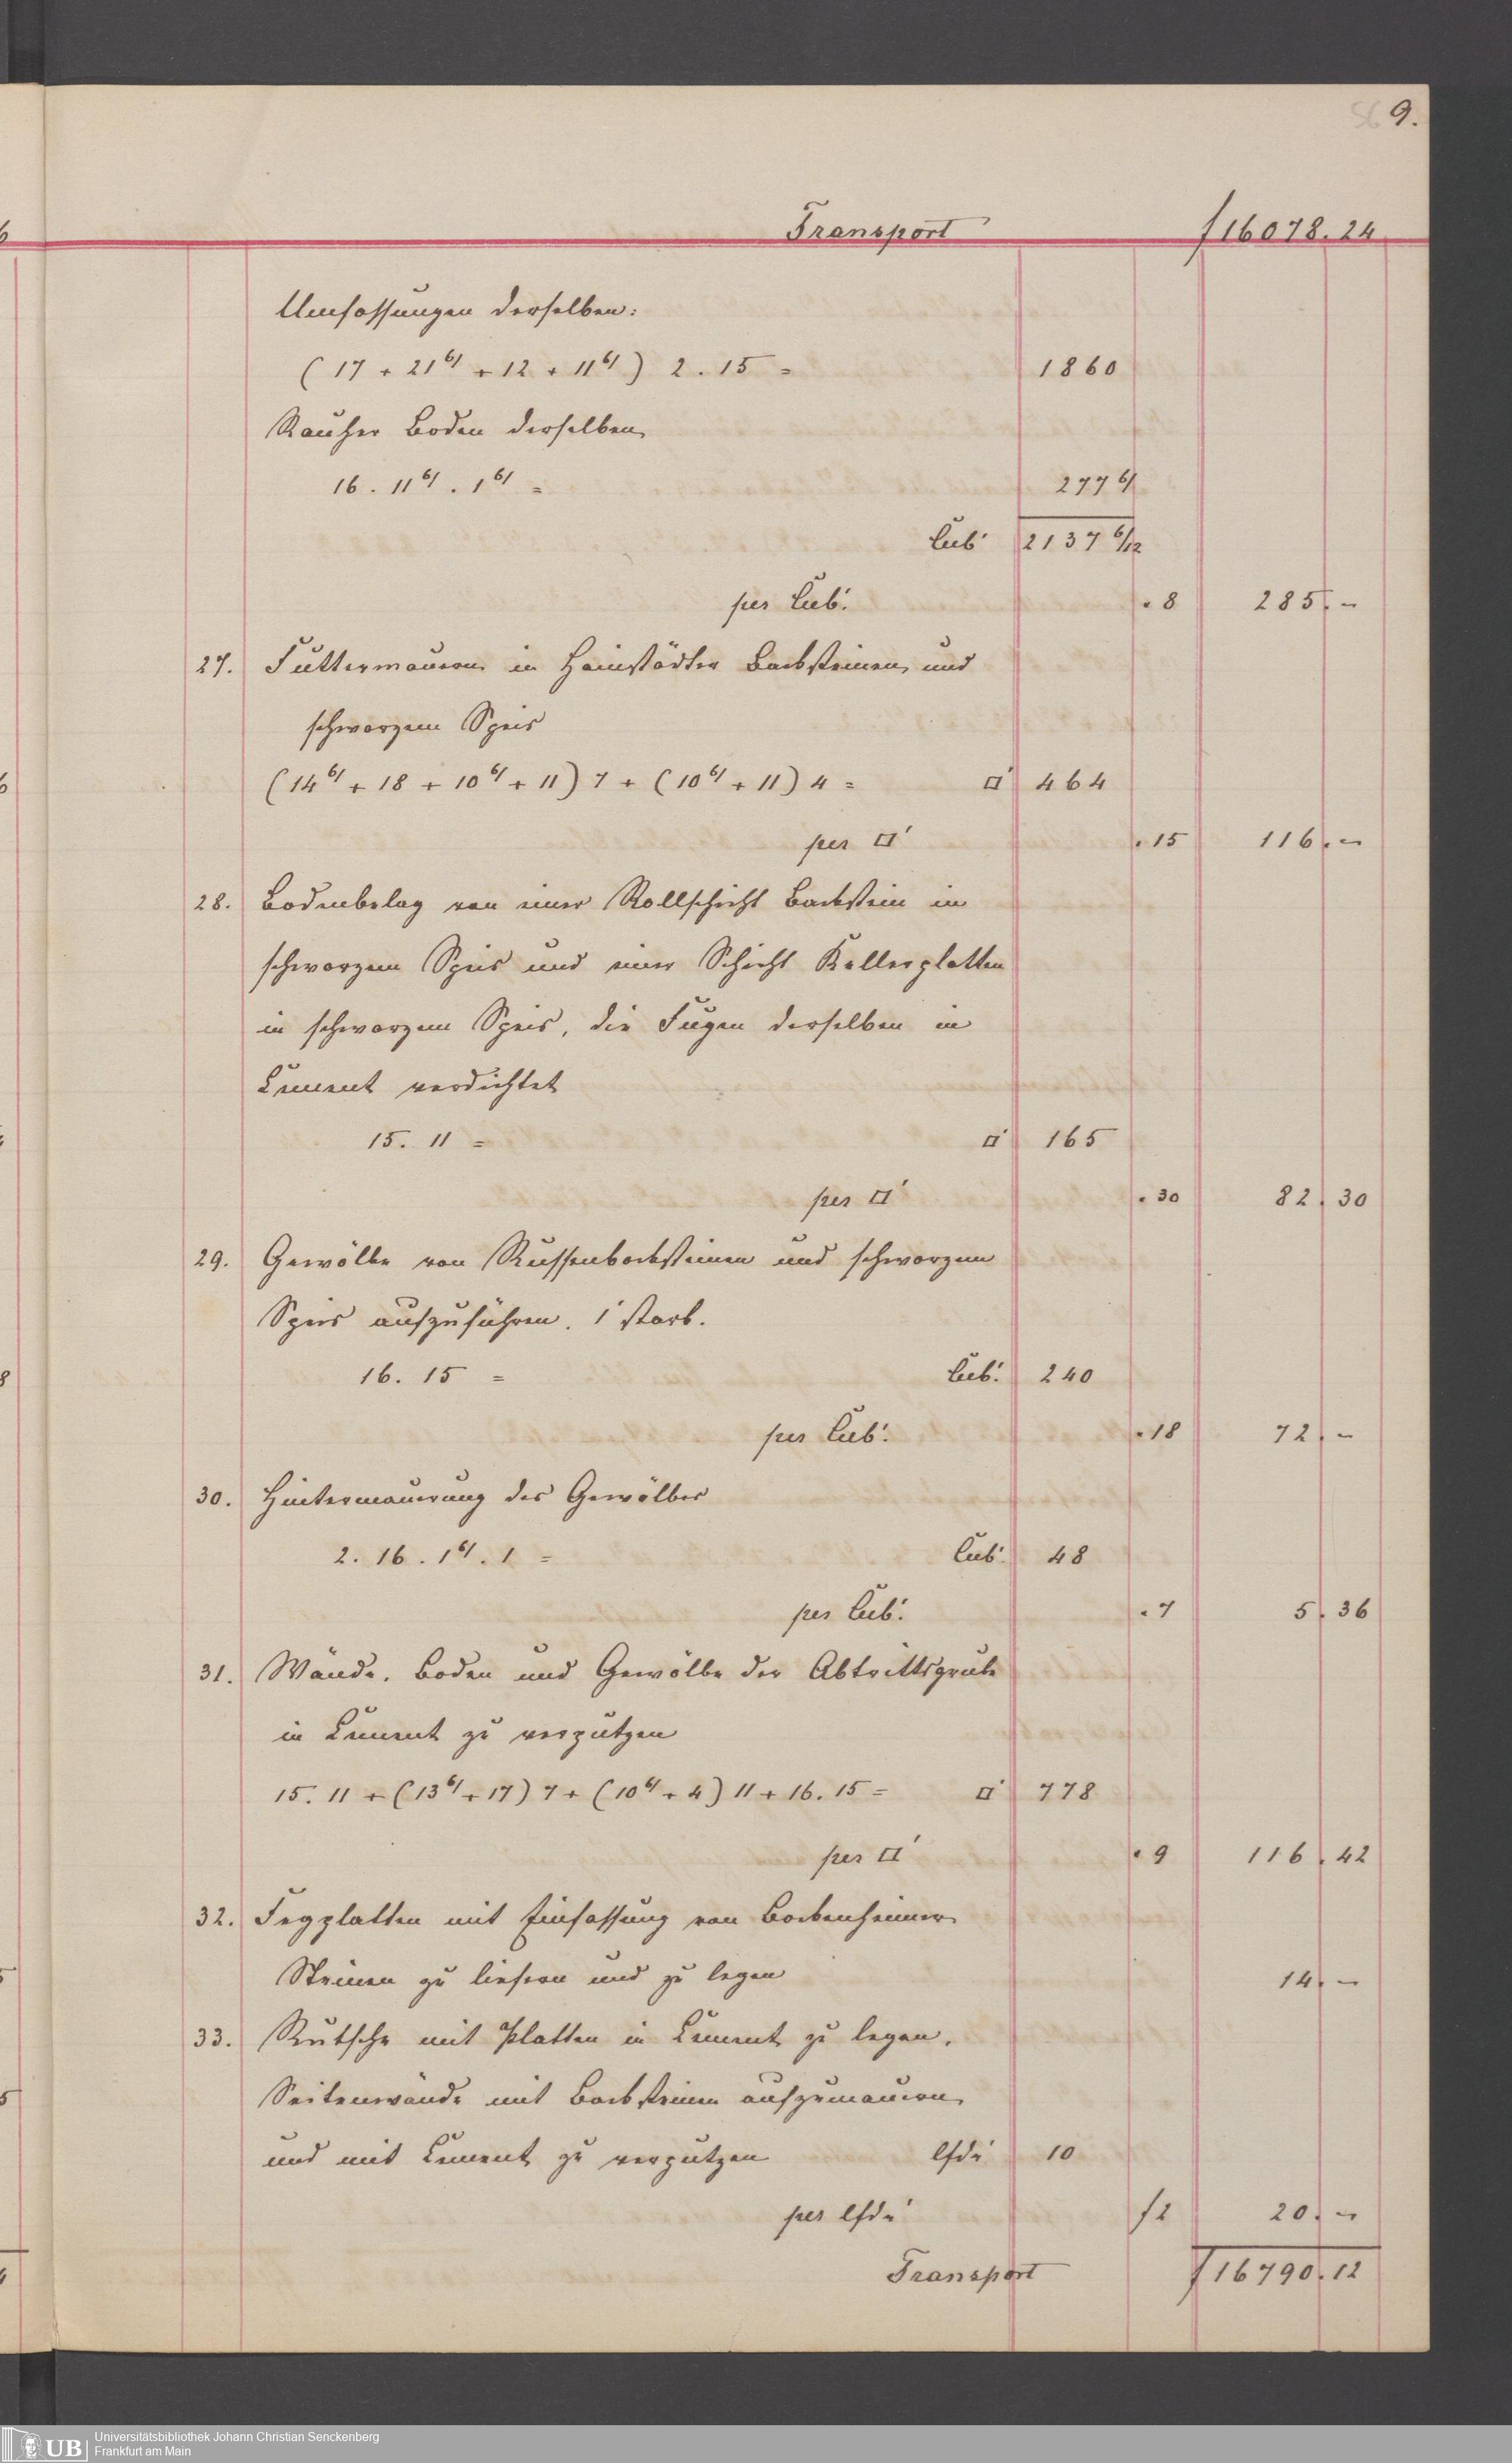 9.
Transport f 16078. 24
Umfassungen derselben:
(17 + 21⁶/ + 12 + 11⁶/) 2 . 15 = 1860
Rauher Boden derselben
16 . 11⁶/ . 1⁶/ = 277⁶/
Cub' 2137 6/12
per Cub'. . 8 285. –
27. Futtermauern in Hainstädter Backsteinen und
schwarzem Speis
(14⁶/ + 18 + 10⁶/ + 11) 7 + (10⁶/ + 11) 4 = □' 464
per □' . 15 116. –
28. Bodenbelag von einer Rollschicht Backstein in
schwarzem Speis und einer Schicht Kellerplatten
in schwarzem Speis, die Fugen derselben in
Cement verdichtet
15. 11 = □' 165
per □' . 30 82. 30
29. Gewölbe von Russenbacksteinen und schwarzem
Speis aufzuführen. 1' stark.
16. 15 = Cub'. 240
per Cub'. . 18 72. –
30. Hintermauerung des Gewölbes
2. 16 . 1⁶/. 1 = Cub'. 48
per Cub'. . 7 5. 36
31. Wände, Boden und Gewölbe der Abtrittsgrube
in Cement zu verputzen
15. 11 + (13⁶/ + 17) 7 + (10⁶/ + 4) 11 + 16. 15 = □' 778
per □' . 9 116. 42
32. Legplatten mit Einfassung von Bockenheimer
Steinen zu liefern und zu legen 14. –
33. Rutsche mit Platten in Cement zu legen,
Seitenwände mit Backsteinen aufzumauern
und mit Cement zu verputzen lfd' 10
per lfd' f 2 20. –
Transport f 16790. 12
UB Universitätsbibliothek Johann Christian Senckenberg
Frankfurt am Main